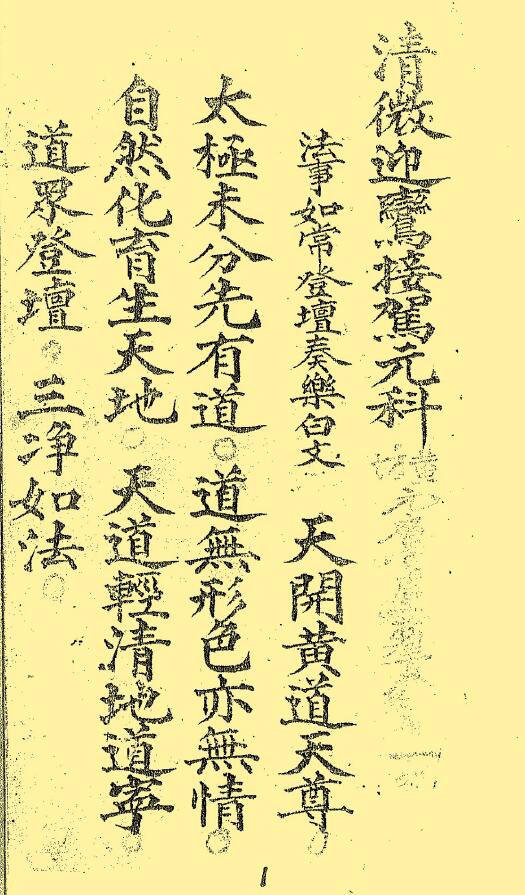 清微迎鸞接駕元科
法事如常登壇奏樂白文　天開黃道天尊
太極未分先有道○道無形色亦無情○
自然化育生天地○天道輕清地道寧○
道眾登壇○三净如法○
1